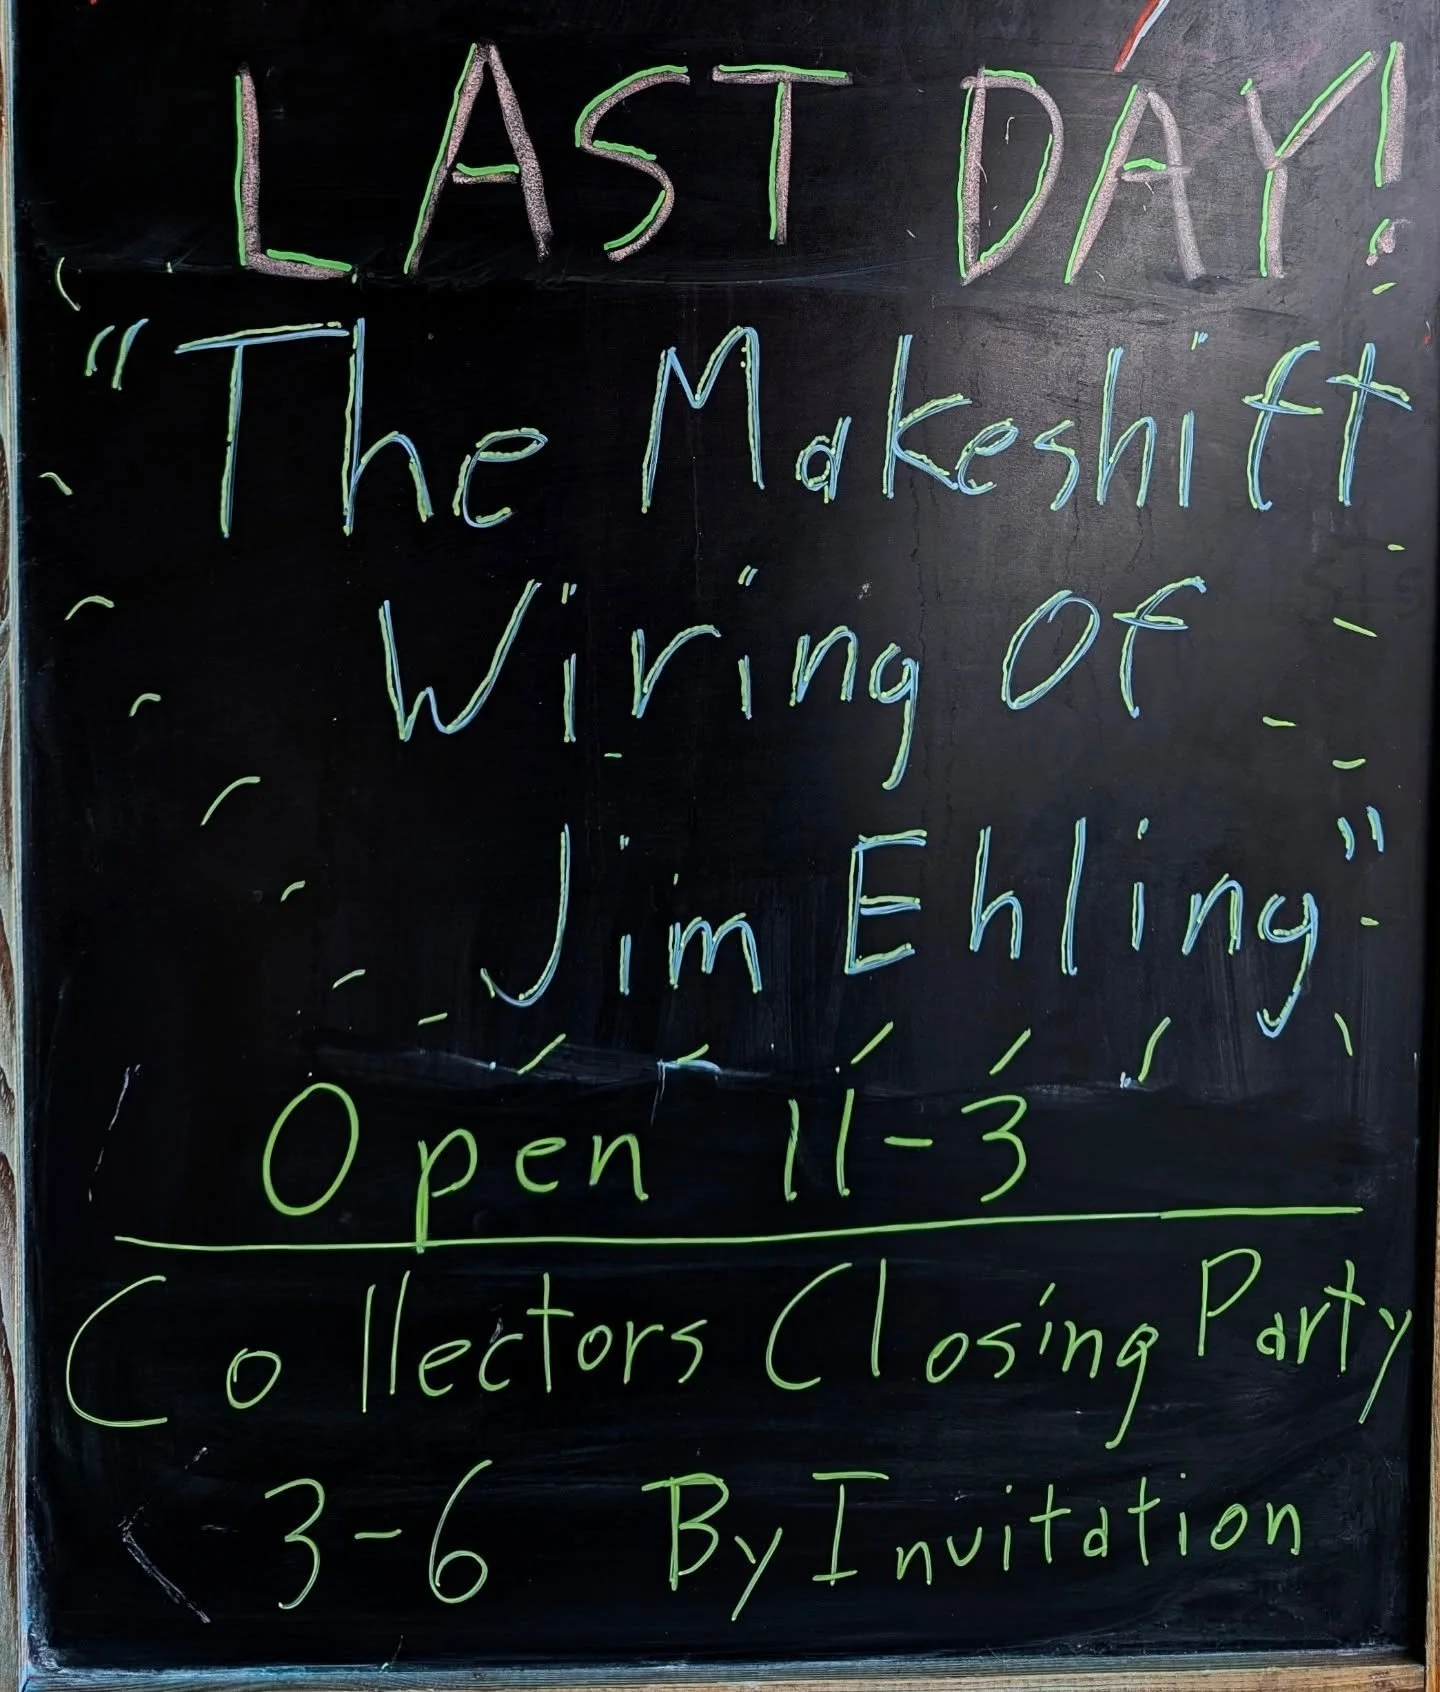 LAST DAY!
"The Makeshift
Wiring Of
Jim Ehling"
Open 11-3
Collectors Closing Party
3-6 By Invitation